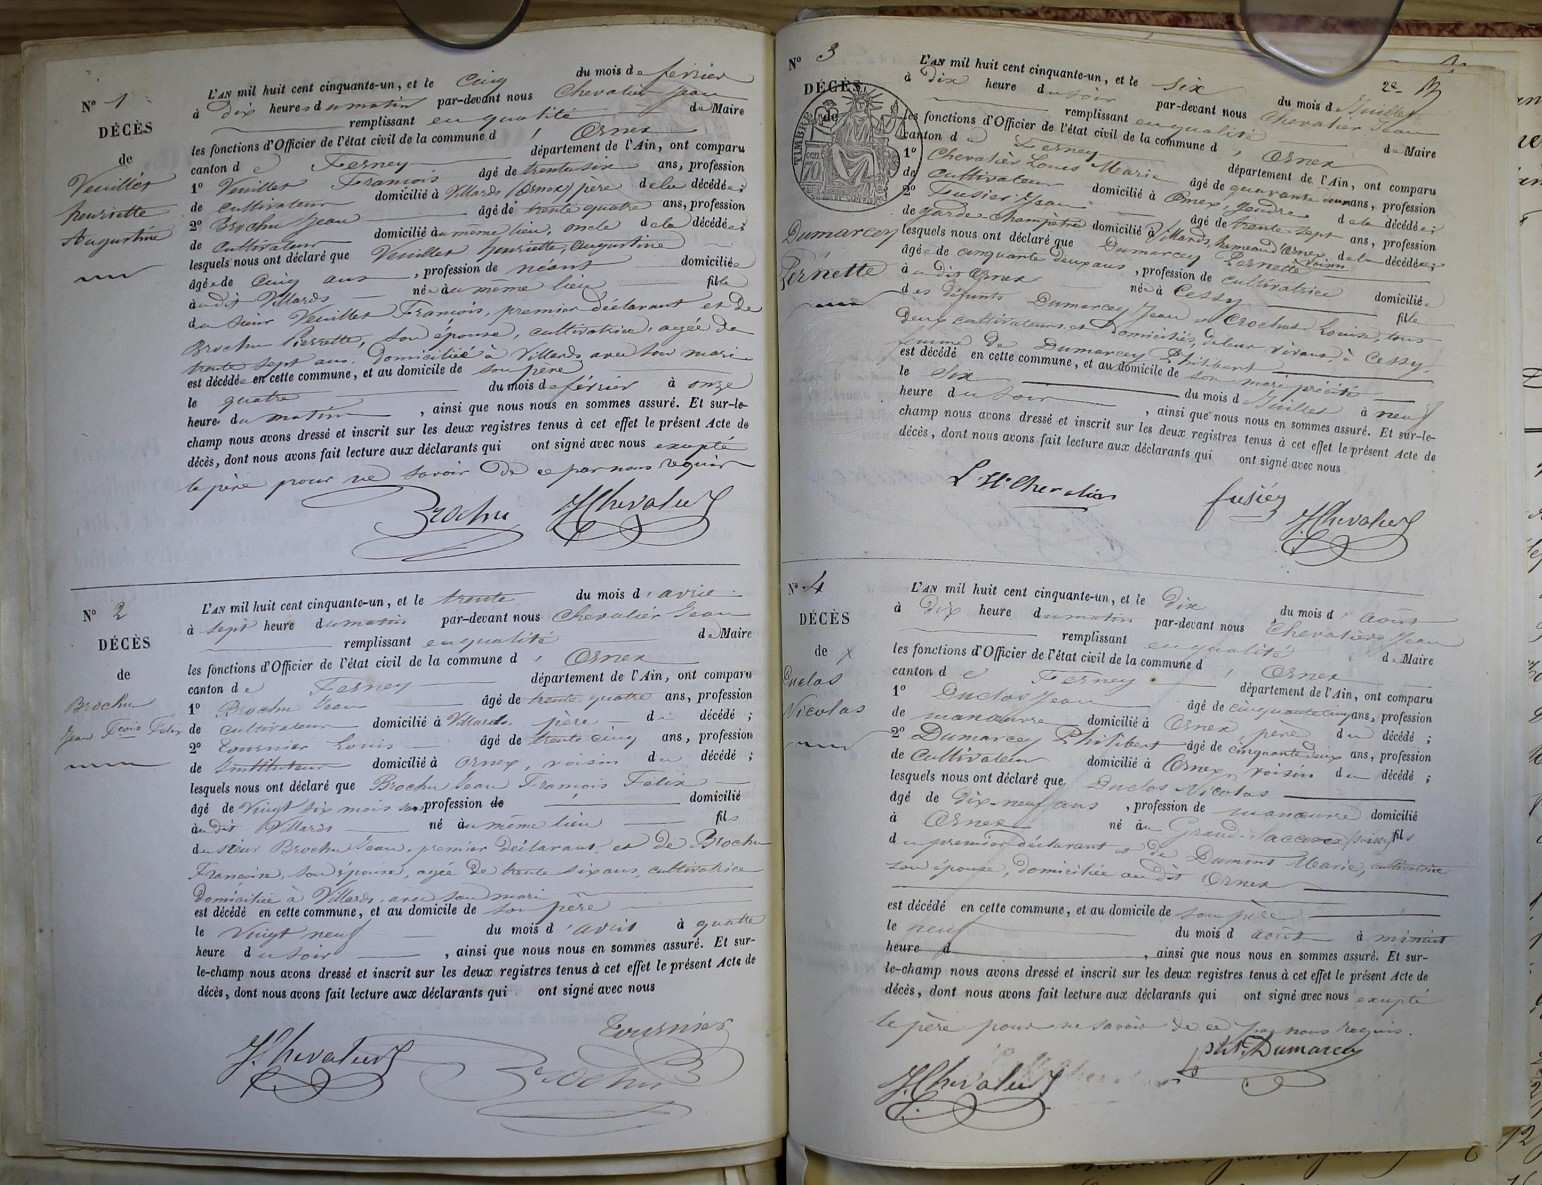 N° 1
DÉCÈS
de
Veuillet
henriette
Augustine
L'AN mil huit cent cinquante-un, et le Cinq du mois de février
à Dix heures du matin par-devant nous Chevalier Jean
remplissant en qualité de Maire
les fonctions d'Officier de l'état civil de la commune d' Ornex
canton de Ferney département de l'Ain, ont comparu
1° Veuillet François âgé de trente six ans, profession
de cultivateur domicilié à Villards (Ornex) père de la décédée;
2° Brochu Jean âgé de trente quatre ans, profession
de cultivateur domicilié au même lieu, oncle de la décédée;
lesquels nous ont déclaré que Veuillet henriette, augustine
âgée de Cinq ans, profession de néant domiciliée
à udit Villards née au même lieu fille
du sieur Veuillet François, premier déclarant et de
Brochu Pierrette, son épouse, cultivatrice, agée de
trente sept ans, domiciliée à Villards avec son mari
est décédée en cette commune, et au domicile de son père
le quatre du mois de février à onze
heure du matin, ainsi que nous nous en sommes assuré. Et sur-le-
champ nous avons dressé et inscrit sur les deux registres tenus à cet effet le présent Acte de
décès, dont nous avons fait lecture aux déclarants qui ont signé avec nous excepté
le père pour ne savoir de ce par nous requis
Brochu J. Chevalier
N° 2
DÉCÈS
de
Brochu
Jean Fçois Felix
L'AN mil huit cent cinquante-un, et le trente du mois d'avril
à sept heure du matin par-devant nous Chevalier Jean
remplissant en qualité de Maire
les fonctions d'Officier de l'état civil de la commune d' Ornex
canton de Ferney département de l'Ain, ont comparu
1° Brochu Jean âgé de trente quatre ans, profession
de cultivateur domicilié à Villards père du décédé;
2° Tournier Louis âgé de trente cinq ans, profession
de Instituteur domicilié à Ornex, voisin du décédé;
lesquels nous ont déclaré que Brochu Jean François Felix
âgé de Vingt six mois profession de domicilié
à udit Villards né au même lieu fils
du sieur Brochu Jean, premier déclarant, et de Brochu
Francoise, son épouse, agée de trente six ans, cultivatrice
domiciliée à Villards, avec son mari
est décédé en cette commune, et au domicile de son père
le Vingt neuf du mois d'avril à quatre
heure du soir, ainsi que nous nous en sommes assuré. Et sur-
le-champ nous avons dressé et inscrit sur les deux registres tenus à cet effet le présent Acte de
décès, dont nous avons fait lecture aux déclarants qui ont signé avec nous
J. Chevalier Brochu Tournier
N° 3
DÉCÈS
de
TIMBRE
Dumarcey
Pernette
L'AN mil huit cent cinquante-un, et le six du mois de Juillet
à Dix heure du soir par-devant nous Chevalier Jean
remplissant en qualité de Maire
les fonctions d'Officier de l'état civil de la commune d' Ornex
canton de Ferney département de l'Ain, ont comparu
1° Chevalier Louis Marie âgé de quarante ans, profession
de cultivateur domicilié à Ornex, gendre de la décédée;
2° Fusier Jean âgé de trente sept ans, profession
de garde champêtre domicilié à Villards, hameau d'Ornex voisin de la décédée;
lesquels nous ont déclaré que Dumarcey Pernette
âgée de cinquante deux ans, profession de cultivatrice domiciliée
à udit Ornex née à Cessy fille
des défunts Dumarcey Jean et Crochat Louise, tous
deux cultivateurs, et domiciliés, de leur vivant à Cessy,
femme de Dumarcey Philibert
est décédé en cette commune, et au domicile de son mari précité
le six du mois de Juillet à neuf
heure du soir, ainsi que nous nous en sommes assuré. Et sur-le-
champ nous avons dressé et inscrit sur les deux registres tenus à cet effet le présent Acte de
décès, dont nous avons fait lecture aux déclarants qui ont signé avec nous
L M Chevalier fusier J. Chevalier
N° 4
DÉCÈS
de
Duclos
Nicolas
L'AN mil huit cent cinquante-un, et le Dix du mois d'août
à Dix heure du matin par-devant nous Chevalier Jean
remplissant en qualité de Maire
les fonctions d'Officier de l'état civil de la commune d' Ornex
canton de Ferney département de l'Ain, ont comparu
1° Duclos Jean âgé de cinquante cinq ans, profession
de manœuvre domicilié à Ornex père du décédé;
2° Dumarcey Philibert âgé de cinquante deux ans, profession
de Cultivateur domicilié à Ornex, voisin du décédé;
lesquels nous ont déclaré que Duclos Nicolas
âgé de Dix neuf ans, profession de manœuvre domicilié
à Ornex né au Grand Saconex fils
du premier déclarant et de Dumont Marie, cultivatrice
son épouse, domiciliée audit Ornex
est décédé en cette commune, et au domicile de son père
le neuf du mois d'août à minuit
heure d, ainsi que nous nous en sommes assuré. Et sur-
le-champ nous avons dressé et inscrit sur les deux registres tenus à cet effet le présent Acte de
décès, dont nous avons fait lecture aux déclarants qui ont signé avec nous excepté
le père pour ne savoir de ce par nous requis.
J. Chevalier pht Dumarcey